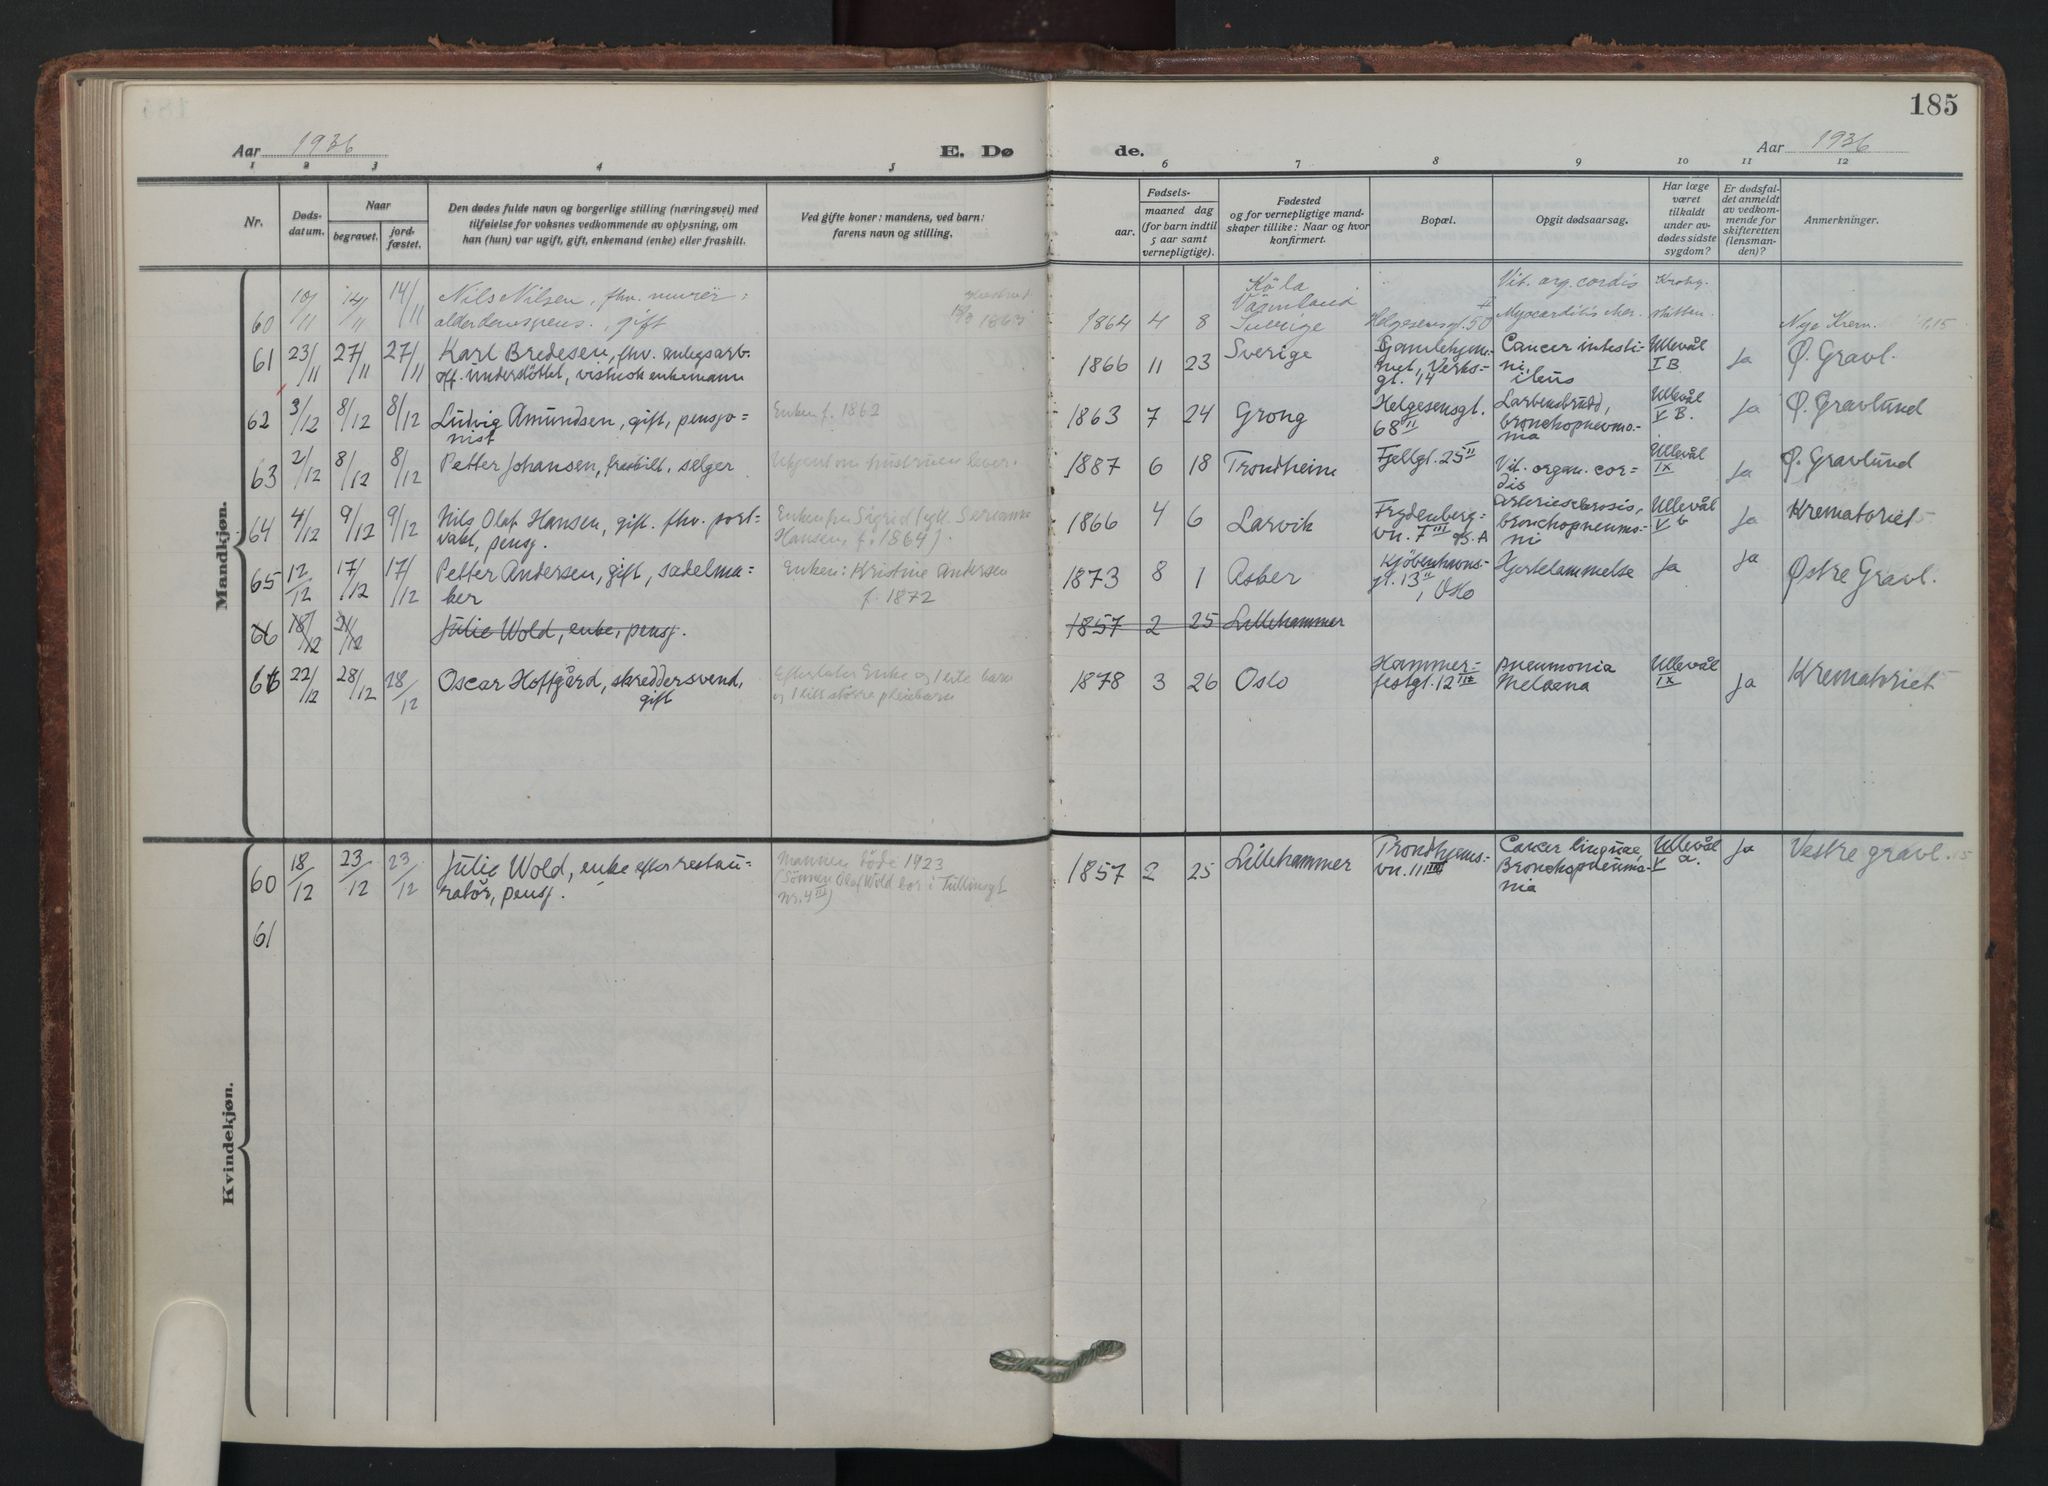 185
Aar 1936
E. Dø
de.
Aar 1936
1 2 3 4 5
6 7 8 9 10 11 12
Nr.
Døds-
datum.
Naar
begravet.
jord-
fæstet.
Den dødes fulde navn og borgerlige stilling (næringsvei) med
tilføielse for voksnes vedkommende av oplysning, om
han (hun) var ugift, gift, enkemand (enke) eller fraskilt.
Ved gifte koner: mandens, ved barn:
farens navn og stilling.
Fødsels-
aar.
maaned dag
(for barn indtil
5 aar samt
vernepligtige).
Fødested
og for vernepligtige mand-
skaper tillike: Naar og hvor
konfirmert.
Bopæl.
Opgit dødsaarsag.
Har læge
været
tilkaldt
under av-
dødes sidste
sygdom?
Er dødsfal-
det anmeldt
av vedkom-
mende for
skifteretten
(lensman-
den)?
Anmerkninger.
Mandkjøn.
60 10/11 14/11 14/11 Nils Nilsen, fhv. murer =
alderdomspens., gift
13/3 1863
1864 4 8
Köla
Värmland
Sverige
Helgesensgt. 50 II
Vit. org. cordis
Myocarditis chr.
Krohg-
støtten.
Nye Krem.
61 23/11 27/11 27/11 Karl Bredesen, fhv. anlegsarb.
off. understöttet, vistnok enkemann
1866 11 23 Sverige
Gamlehjem-
met, Verks-
gt. 14
Cancer intesti-
ni,
ileus
Ullevål
I B
Ja
Ø. Gravl.
62 3/12 8/12 8/12 Ludvig Amundsen, gift, pensjo=
nist
Enken f. 1862
1863 7 24 Grong
Helgesensgt.
68 II
Larbensbrudd,
bronchopnevmo-
nia
Ullevål
V B.
Ja
Ø. Gravlund
63 2/12 8/12 8/12 Petter Johansen, fraskilt, selger
Ukjent om hustruen lever.
1887 6 18 Trondheim
Fjellgt. 25 II
Vit. organ. cor-
dis
Ullevål
IX
Ja
Ø. Gravlund
64 4/12 9/12 9/12 Nils Olaf Hansen, gift. fhv. port-
vakt, pensj.
Hansen, f. 1864)
1866 4 6 Larvik
Frydenberg-
vn. 7 III
Arteriesclerosis,
bronchopneumo-
ni
Ullevål
V b
Ja
Krematoriet
65 12/12 17/12 17/12 Petter Andersen, gift, sadelma=
ker
Enken: Kristine Andersen
f. 1872
1873 8 1 Asker
Kjöbenhavns-
gt. 13 II, Oslo
Hjertelammelse
Ja
Ja
Østre Gravl.
66 18/12 21/12 Julie Wold, enke, pensj.
1857 2 25 Lillehammer
66 22/12 28/12 28/12 Oscar Hoffgård, skreddersvend,
gift
Efterlater Enke og 1 ekte barn
og 1 litt större pleiebarn
1878 3 26 Oslo
Hammer=
festgt. 12 III
Pneumonia
Melaena
Ullevål
IX
Ja
Krematoriet
Kvindekjøn.
60 18/12 23/12 23/12 Julie Wold, enke efter restau-
ratör, pensj.
Mannen döde 1923
(Sönnen Olaf Wold bor i Tullinsgt
Nr. 4 III)
1857 2 25 Lillehammer
Trondhjems-
vn. 111 III
Cancer linguae,
Bronchopneumo-
nia
Ullevål
V a.
Ja
Vestre gravl.
61